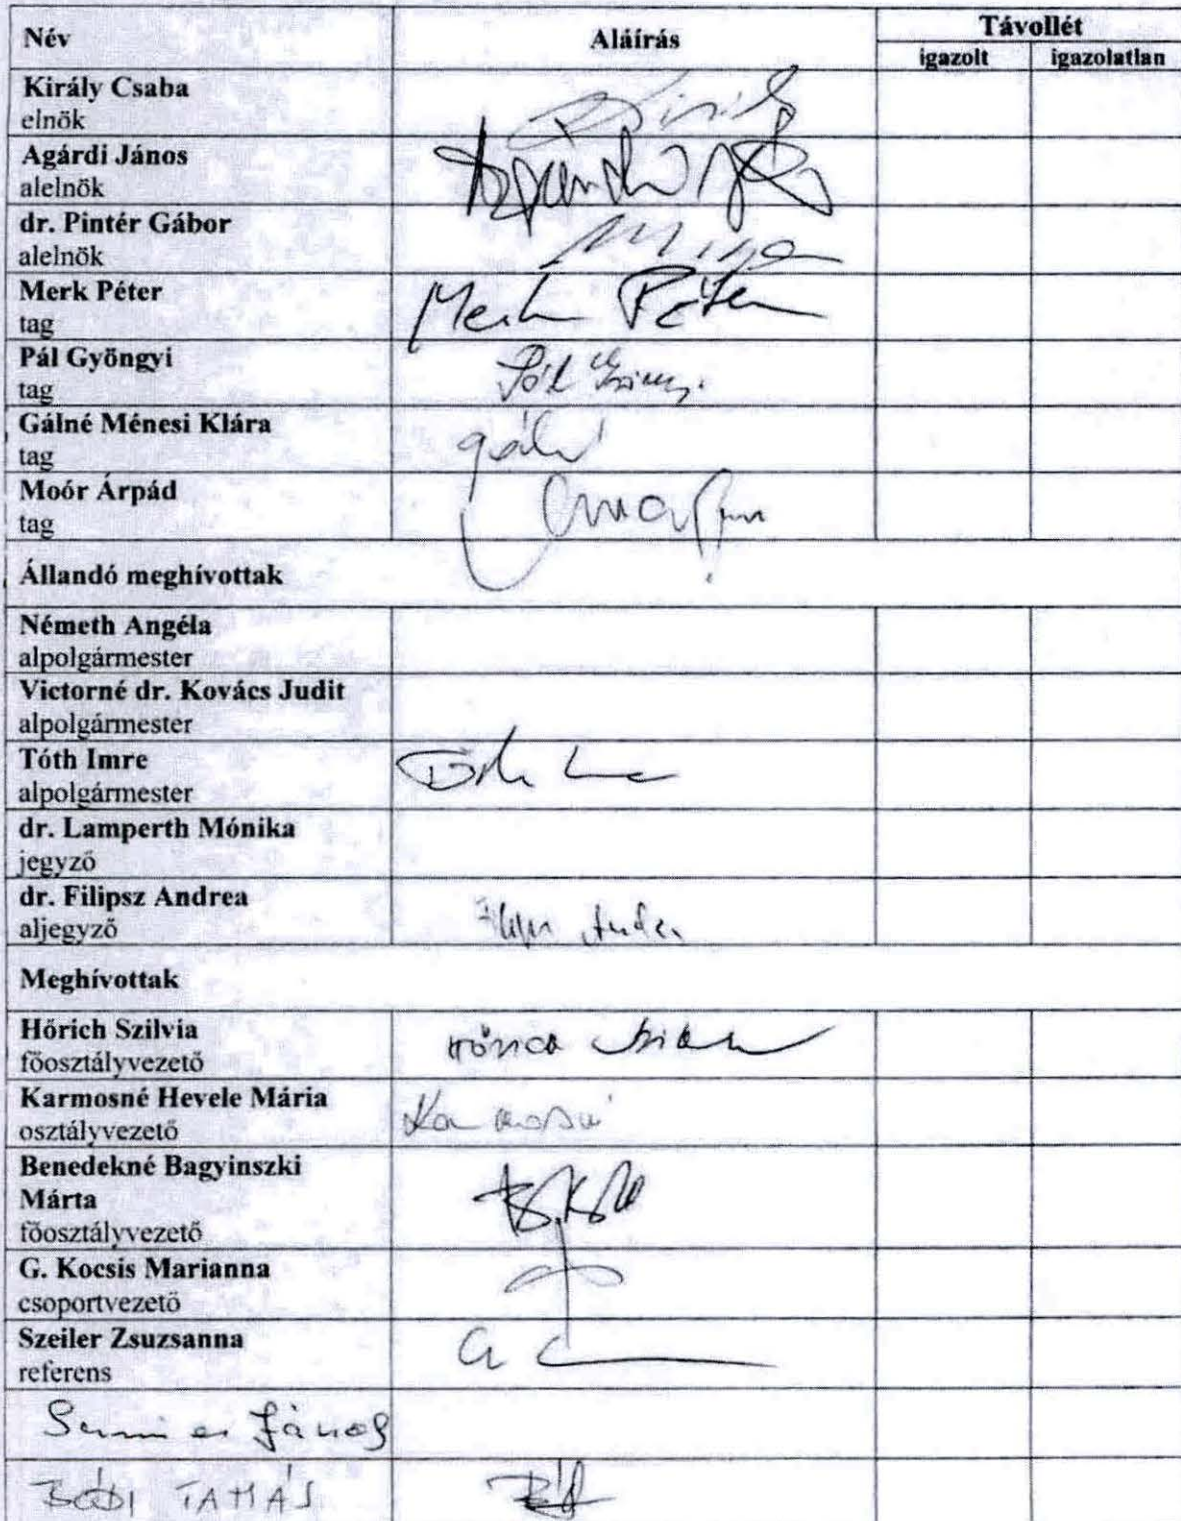 Név Aláírás Távollét
igazolt igazolatlan
Király Csaba
elnök
Agárdi János
alelnök
dr. Pintér Gábor
alelnök
Merk Péter Merk Péter
tag
Pál Gyöngyi Pál
tag
Gálné Ménesi Klára Gálné
tag
Moór Árpád
tag
Állandó meghívottak
Németh Angéla
alpolgármester
Victorné dr. Kovács Judit
alpolgármester
Tóth Imre Tóth Imre
alpolgármester
dr. Lamperth Mónika
jegyző
dr. Filipsz Andrea
aljegyző
Meghívottak
Hőrich Szilvia
főosztályvezető
Karmosné Hevele Mária Karmosné
osztályvezető
Benedekné Bagyinszki
Márta
főosztályvezető
G. Kocsis Marianna
csoportvezető
Szeiler Zsuzsanna
referens
János
BÓDI TAMÁS